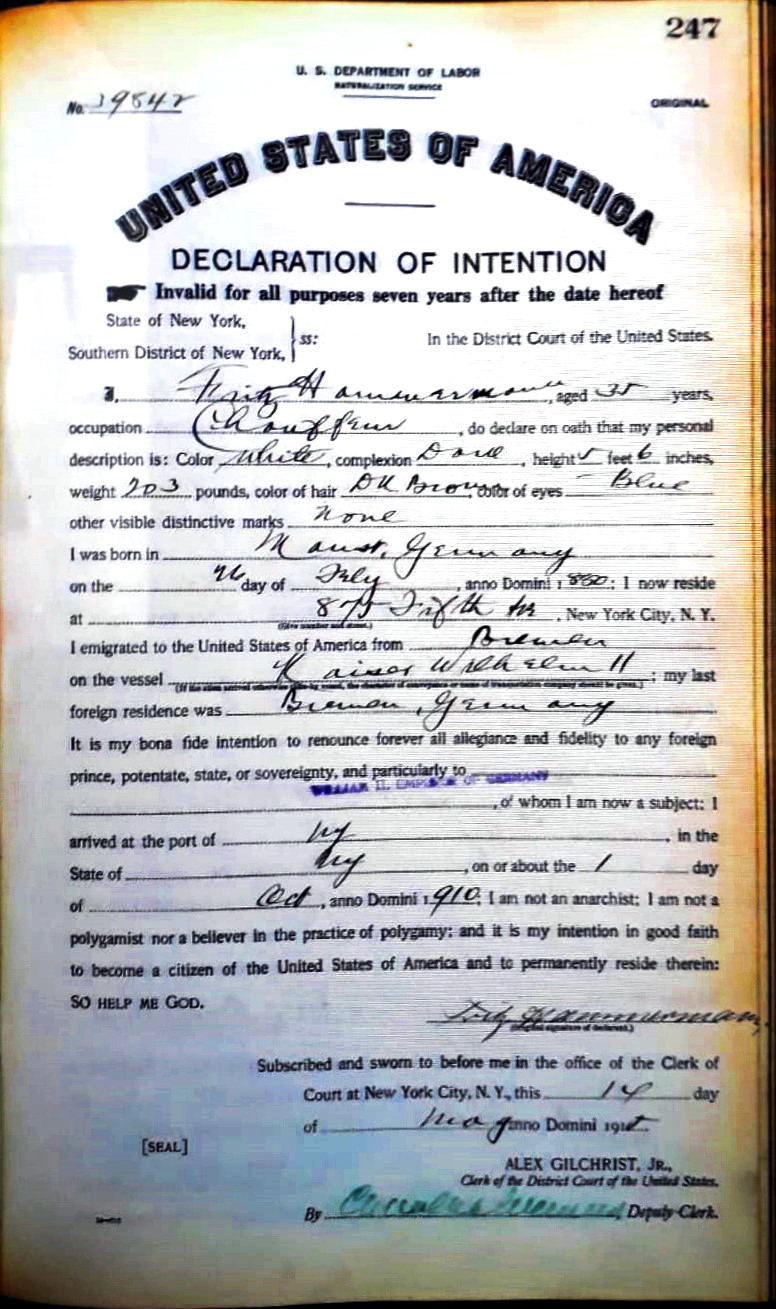 247
U. S. DEPARTMENT OF LABOR
NATURALIZATION SERVICE
No. 19842
ORIGINAL
UNITED STATES OF AMERICA
DECLARATION OF INTENTION
Invalid for all purposes seven years after the date hereof
State of New York,
Southern District of New York, } ss:
In the District Court of the United States.
I, Fritz Hammermann, aged 35 years,
occupation Chauffeur, do declare on oath that my personal
description is: Color White, complexion Dark, height 5 feet 6 inches,
weight 203 pounds, color of hair Dk Brown, color of eyes Blue
other visible distinctive marks None
I was born in Germany
on the 26 day of, anno Domini 1880; I now reside
at 875 Fifth Av, New York City, N. Y.
(Give number and street.)
I emigrated to the United States of America from Bremen
on the vessel Kaiser Wilhelm II; my last
(If the alien arrived otherwise than by vessel, the character of conveyance or name of transportation company should be given.)
foreign residence was Bremen, Germany
It is my bona fide intention to renounce forever all allegiance and fidelity to any foreign
prince, potentate, state, or sovereignty, and particularly to
WILLIAM II, EMPEROR OF GERMANY
, of whom I am now a subject; I
arrived at the port of NY, in the
State of NY, on or about the 1 day
of Oct, anno Domini 1910; I am not an anarchist; I am not a
polygamist nor a believer in the practice of polygamy; and it is my intention in good faith
to become a citizen of the United States of America and to permanently reside therein:
SO HELP ME GOD.
Fritz Hammermann
(Original signature of declarant.)
Subscribed and sworn to before me in the office of the Clerk of
Court at New York City, N. Y., this 14 day
of May anno Domini 1915.
[SEAL]
ALEX GILCHRIST, JR.,
Clerk of the District Court of the United States.
By Deputy Clerk.